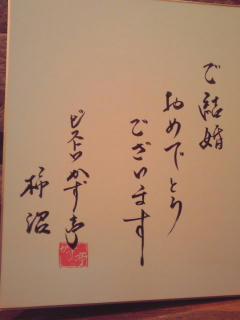 ご結婚
おめでとう
ございます
ビストロかず亭
柿沼